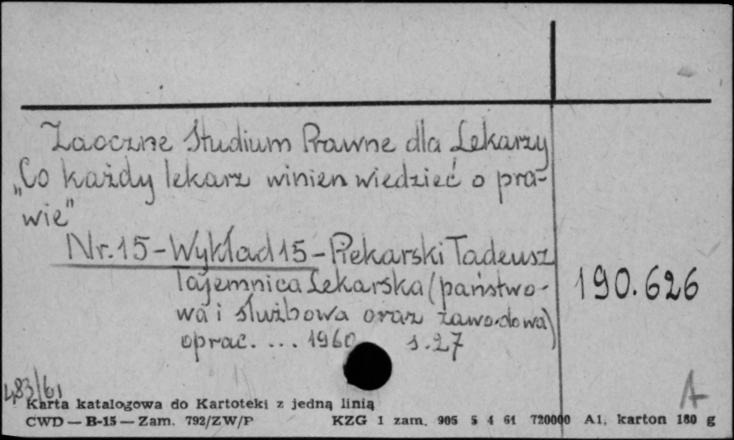 Zaoczne Studium Prawne dla Lekarzy
„Co każdy lekarz winien wiedzieć o pra-
wie"
Nr. 15 - Wykład 15 - Piekarski Tadeusz
Tajemnica Lekarska (państwo-
wa i służbowa oraz zawodowa)
oprac. ... 1960 s. 27
190.626
483/61
A
Karta katalogowa do Kartoteki z jedną linią
CWD — B-15 — Zam. 792/ZW/P KZG 1 zam. 905 5 4 61 720000 A1, karton 180 g